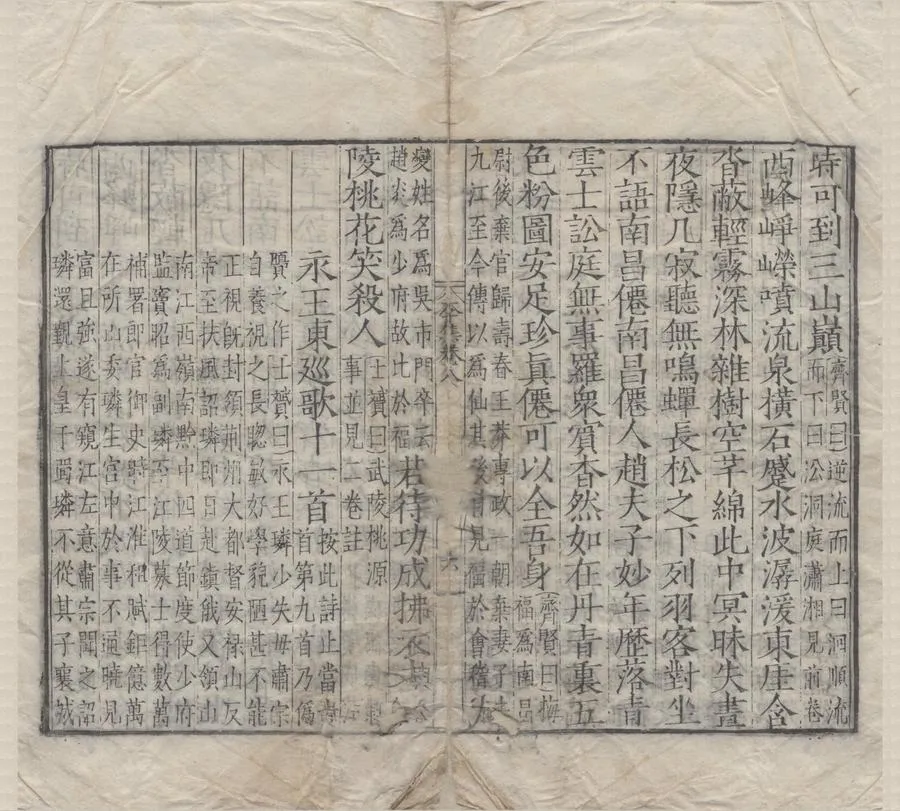 時可到三山巔
齊賢曰逆流而上曰洄順流
而下曰㳂洞庭瀟湘見前卷
西峰崢嶸噴流泉橫石蹙水波潺湲東崖合
沓蔽輕霧深林雜樹空芊綿此中冥昧失晝
夜隱几寂聽無鳴蟬長松之下列羽客對坐
不語南昌僊南昌僊人趙夫子妙年歷落青
雲士訟庭無事羅衆賓杳然如在丹青裏五
色粉圖安足珍眞僊可以全吾身
齊賢曰梅
福爲南昌
尉後棄官歸壽春王莽專政一朝棄妻子去
九江至今傳以爲仙其後有見福於會稽
集卷八
六
變姓名爲吳市門卒云
趙炎爲少府故比於福
若待功成拂衣
陵桃花笑殺人
士贇曰武陵桃源
事並見二卷註
永王東巡歌十一首
按此詩止當
首第九首乃僞
贋之作士贇曰永王璘少失毋肅宗
自養視之長聰敏好學貌陋甚不能
正視旣封領荆州大都督安祿山反
帝至扶風詔璘即日赴鎮俄又領山
南江西嶺南黔中四道節度使少府
監竇昭爲副璘至江陵募士得數萬
補署郎官御史時江淮租賦鉅億萬
在所山委璘生宮中於事不通曉見
富且強遂有窺江左意肅宗聞之詔
璘還覲上皇于蜀璘不從其子襄城